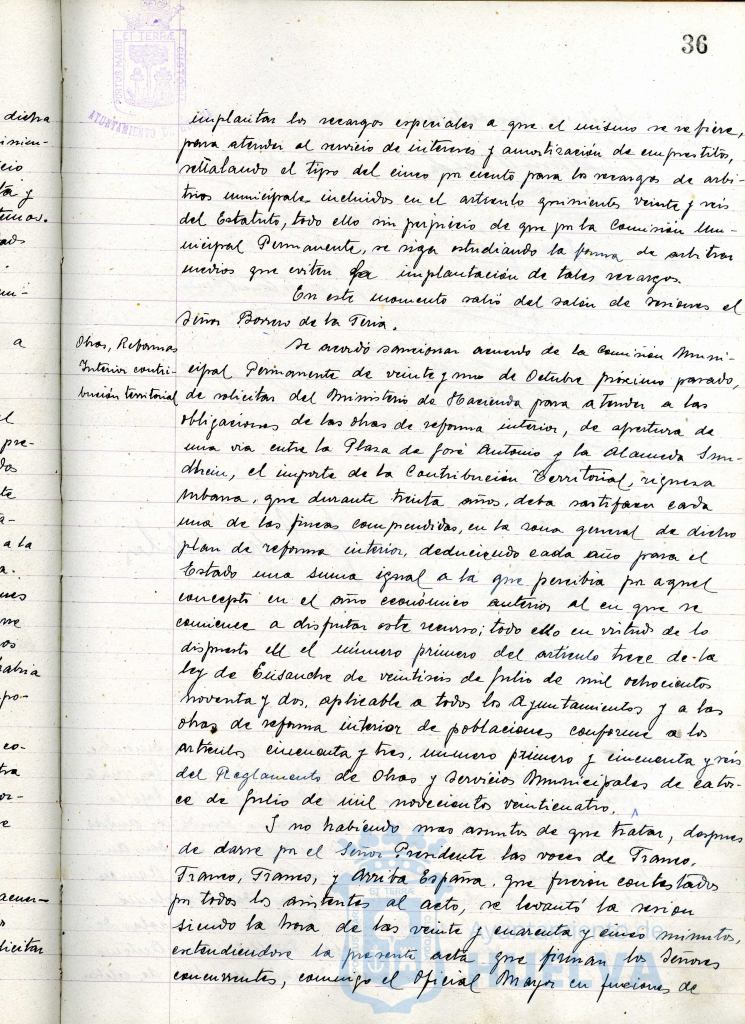 36
PORTUS MARIS ET TERRÆ CUSTODIA
AYUNTAMIENTO DE
implantar los recargos especiales a que el mismo se refiere,
para atender al servicio de intereses y amortización de empréstitos,
señalando el tipo del cinco por ciento para los recargos de arbi-
trios municipales incluidos en el artículo quinientos veinte y seis
del Estatuto, todo ello sin perjuicio de que por la Comisión Mu-
nicipal Permanente, se siga estudiando la forma de arbitrar
medios que eviten la implantación de tales recargos.
En este momento salió del salón de sesiones el
Señor Borrero de la Feria.
Obras, Reformas
Interior contri-
bución territorial
Se acordó sancionar acuerdo de la Comisión Muni-
cipal Permanente de veinte y uno de Octubre próximo pasado,
de solicitar del Ministerio de Hacienda para atender a las
obligaciones de las obras de reforma interior, de apertura de
una via entre la Plaza de José Antonio y la Alameda Sun-
dheim, el importe de la Contribución Territorial, riqueza
Urbana, que durante treinta años, deba satisfacer cada
una de las fincas comprendidas, en la zona general de dicho
plan de reforma interior, deduciendo cada año para el
Estado una suma igual a la que percibia por aquel
concepto en el año económico anterior al en que se
comience a disfrutar este recurso; todo ello en virtud de lo
dispuesto en el número primero del artículo trece de la
ley de Ensanche de veintiseis de Julio de mil ochocientos
noventa y dos, aplicable a todos los Ayuntamientos y a las
obras de reforma interior de poblaciones conforme a los
artículos cincuenta y tres, número primero y cincuenta y seis
del Reglamento de Obras y Servicios Municipales de cator-
ce de Julio de mil novecientos veinticuatro.
Y no habiendo mas asuntos de que tratar, despues
de darse por el Señor Presidente las voces de Franco,
Franco, Franco, y Arriba España, que fueron contestados
por todos los asistentes al acto, se levantó la sesion
siendo la hora de las veinte y cuarenta y cinco minutos,
extendiendose la presente acta que firman los Señores
concurrentes, conmigo el Oficial Mayor en funciones de
Ayuntamiento de
HUELVA